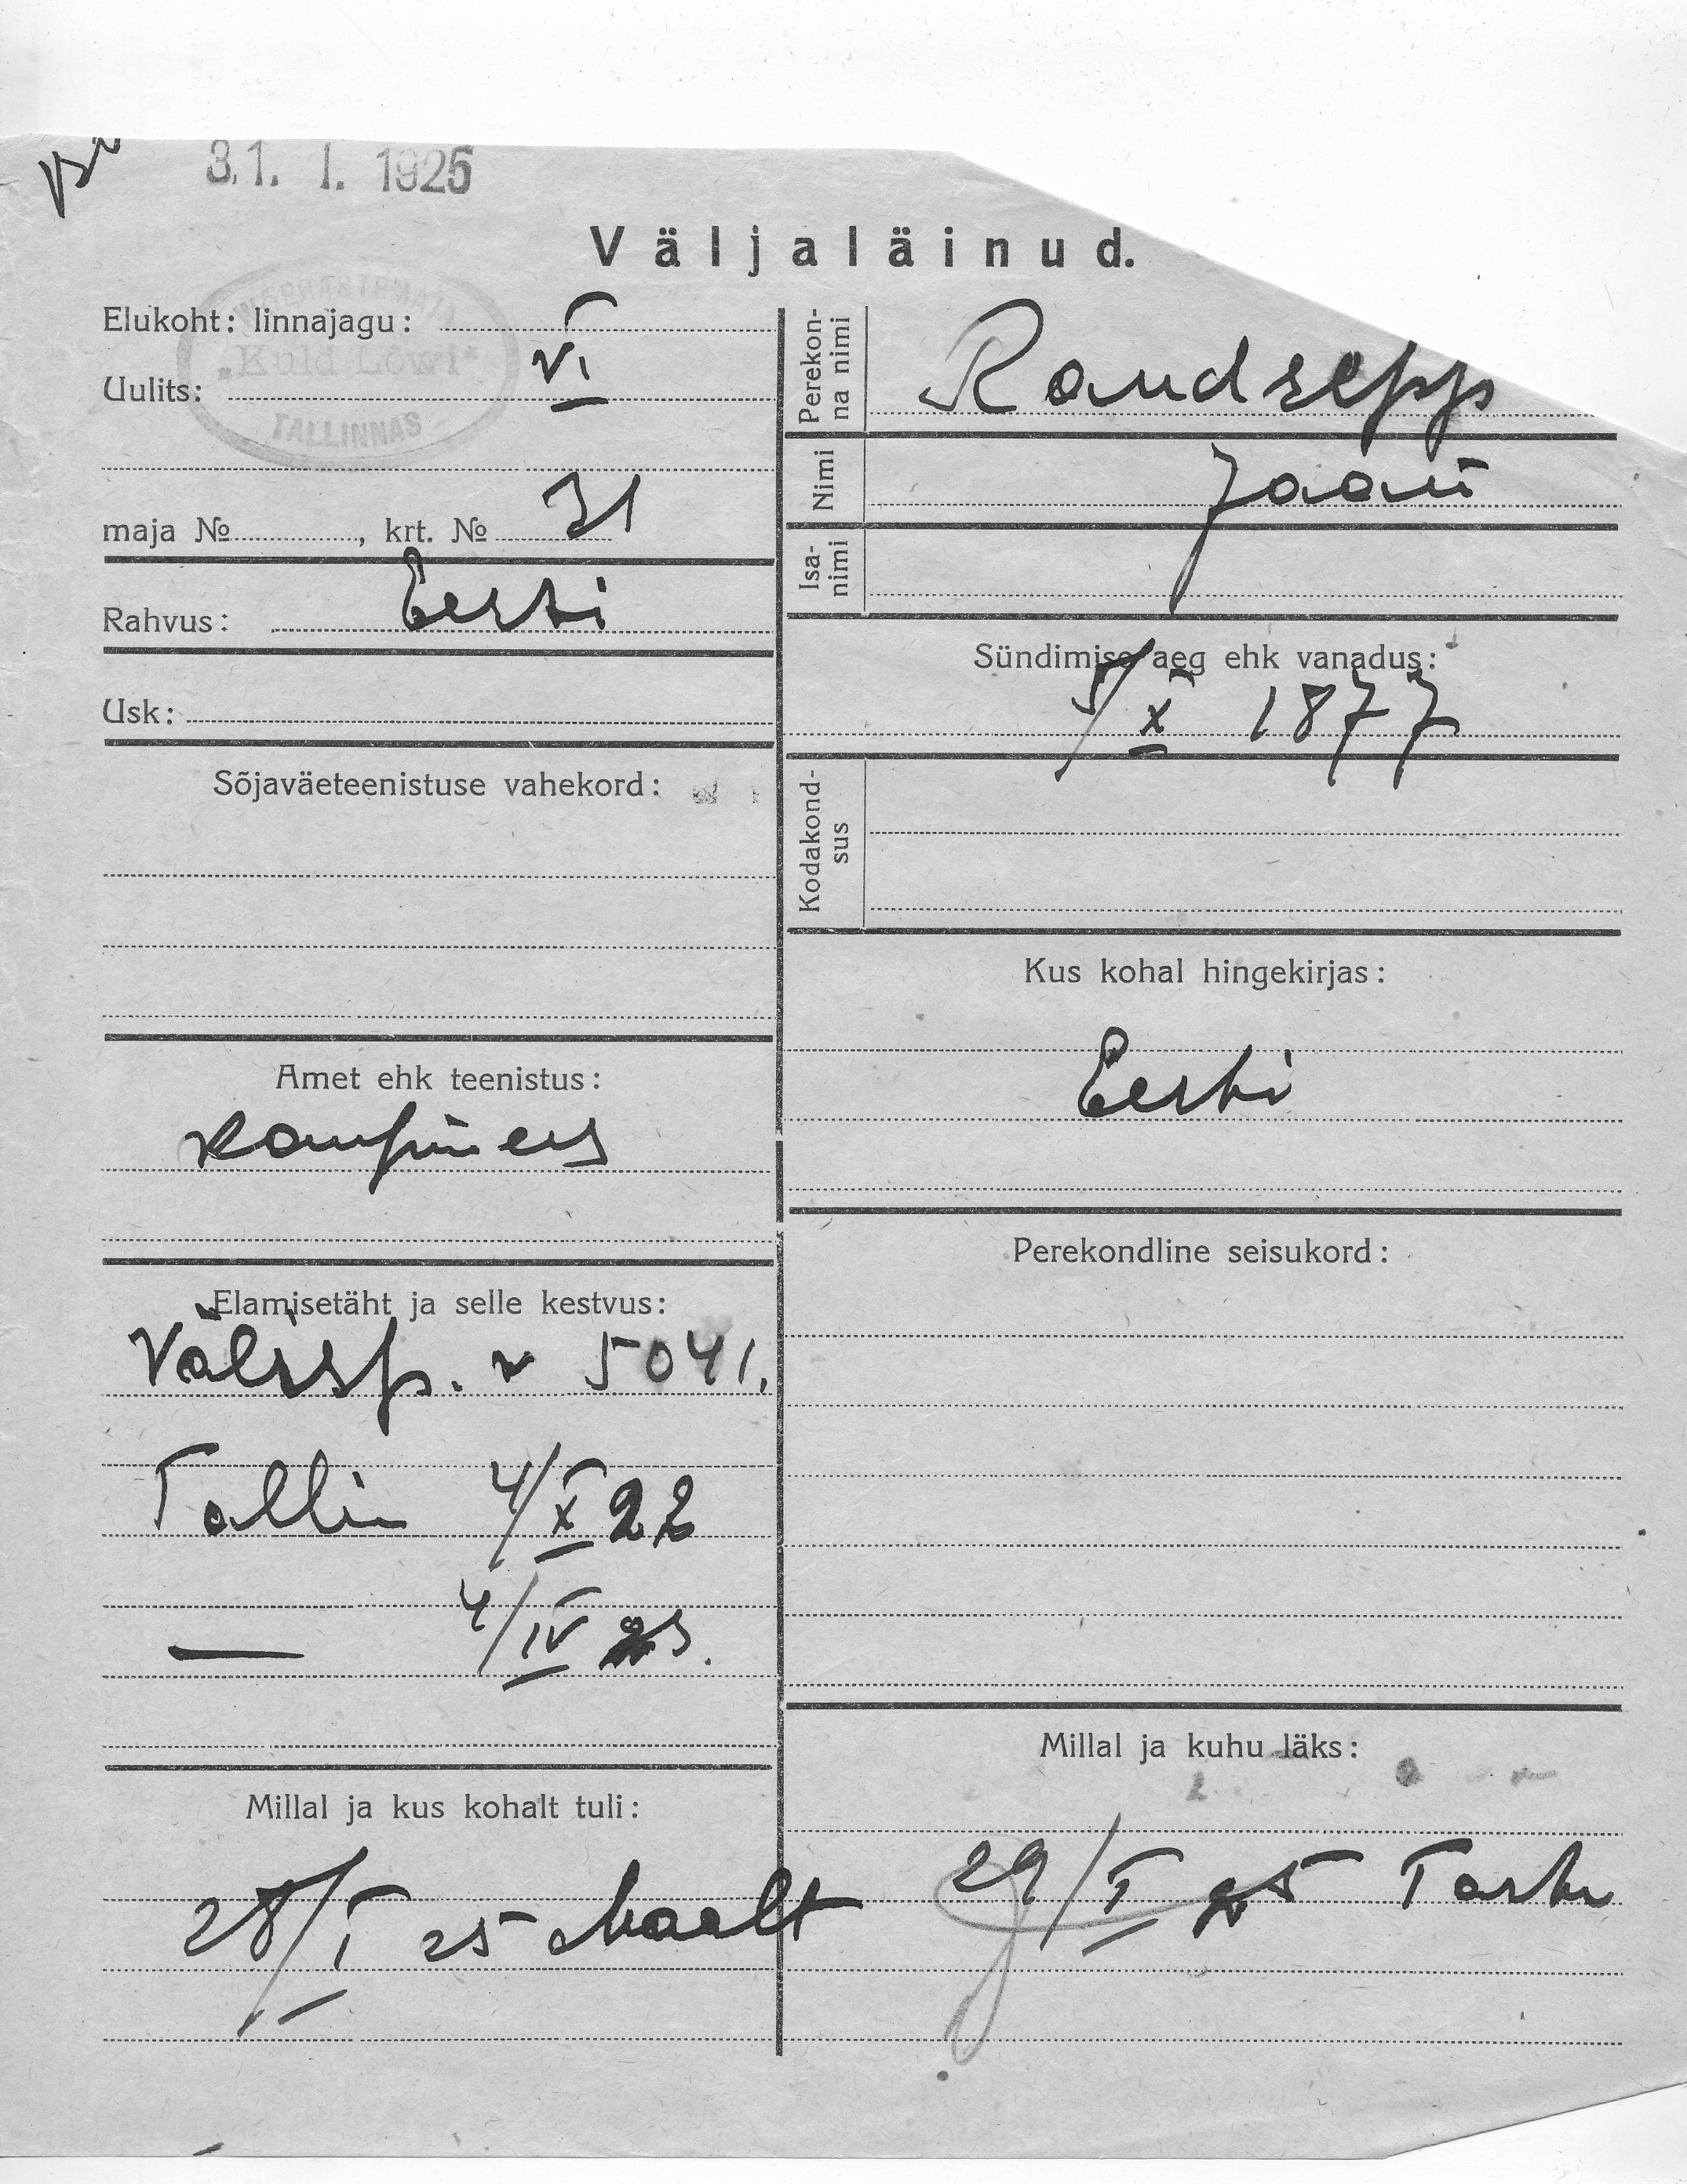 31. I. 1925
Väljaläinud.
VÕÕRASTEMAJA
„Kuld Lõwi“
TALLINNAS
Elukoht: linnajagu:
Uulits: VI
maja №, krt. № 31
Rahvus: Eesti
Usk:
Sõjaväeteenistuse vahekord:
Amet ehk teenistus:
kaupmees
Elamisetäht ja selle kestvus:
Välissp. N 5041.
Tallin 4/X 22
— 4/IV
Millal ja kus kohalt tuli:
28/I 25
Perekonna nimi Raudsepp
Nimi Jaan
Isanimi
Sündimise aeg ehk vanadus:
5/X 1877
Kodakondsus
Kus kohal hingekirjas:
Eesti
Perekondline seisukord:
Millal ja kuhu läks:
29/I 25 Tartu